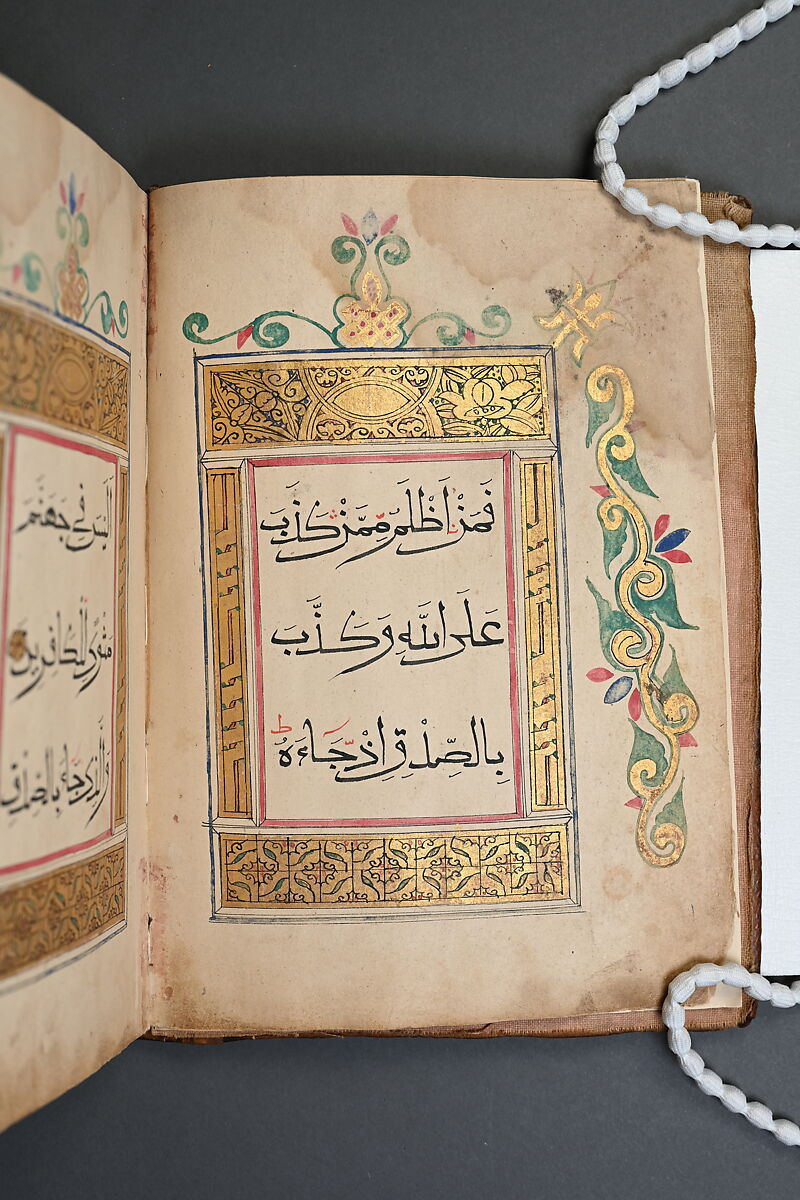 فَمَنْ اَظْلَمُ مِمَّنْ كَذَبَ
عَلَى اللَّهِ وَكَذَّبَ
بِالصِّدْقِ اِذْ جَاءَهُ ط
اَلَيْسَ فِي جَهَنَّمَ
مَثْوًى لِلْكَافِرِينَ
وَالَّذِي جَاءَ بِالصِّدْقِ